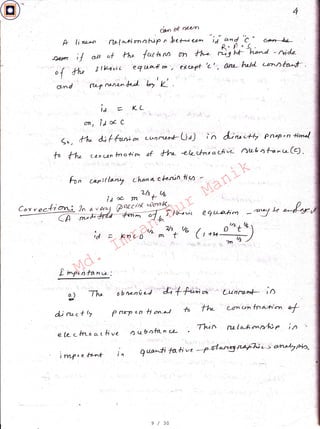 4
can be seen
A linear relationship between "id" and "C" can be
seen if all of the factors on the right hand-side
R.H.S
of the Ilkovic equation, except 'C', are held constant.
and represented by 'K'.
id = KC
or, id ∝ C
So, the diffusion current (id) in directly proportional
to the concentration of the electroactive substance (C).
For capillary characteristics -
id ∝ m^2/3 t^1/6
Correction: In a very precise work,
(A modified form of Ilkovic equation - may be employed
id = KnCD^1/2 m^2/3 t^1/6 (1 + D^1/2 t^1/6 / m^1/3)
Importance:
a) The observed diffusion current in
directly proportional to the concentration of
electroactive substance. This relationship in
important in quantitative polarographic analysis.
Md. Imran Nur Manik
9 / 30